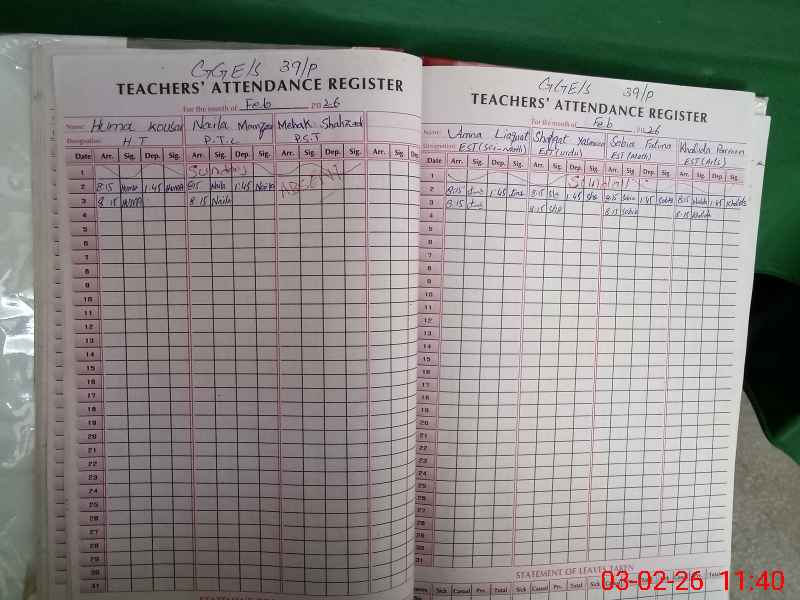 GGE/S 39/P
TEACHERS' ATTENDANCE REGISTER
For the month of Feb 2026
Name: Huma Kousar Naila Mehak Shahzad
Designation H T P.T.C P.S.T
Date Arr. Sig. Dep. Sig. Arr. Sig. Dep. Sig. Arr. Sig. Dep. Sig. Arr. Sig. Dep. Sig.
1 Sunday
2 8:15 Huma 1:45 Huma 8:15 Naila 1:45 Naila ABSENT
3 8:15 Huma 8:15 Naila
4
5
6
7
8
9
10
11
12
13
14
15
16
17
18
19
20
21
22
23
24
25
26
27
28
29
30
31
GGE/S 39/P
TEACHERS' ATTENDANCE REGISTER
For the month of Feb 2026
Name: Umna Liaquat Shafqat Yasmeen Sabia Fatima Khalida Parveen
Designation EST (Urdu) EST (Math) EST (Arts)
Date Arr. Sig. Dep. Sig. Arr. Sig. Dep. Sig. Arr. Sig. Dep. Sig. Arr. Sig. Dep. Sig.
1 Sunday
2 8:15 1:45 8:15 1:45 8:15 Sabia 1:45 Sabia 8:15 Khalida 1:45 Khalida
3 8:15 8:15 8:15 Sabia 8:15 Khalida
4
5
6
7
8
9
10
11
12
13
14
15
16
17
18
19
20
21
22
23
24
25
26
27
28
29
30
31
STATEMENT OF LEAVES TAKEN
Sick Casual Pri. Total Sick Casual Pri. Total Sick Casual Total
03-02-26 11:40